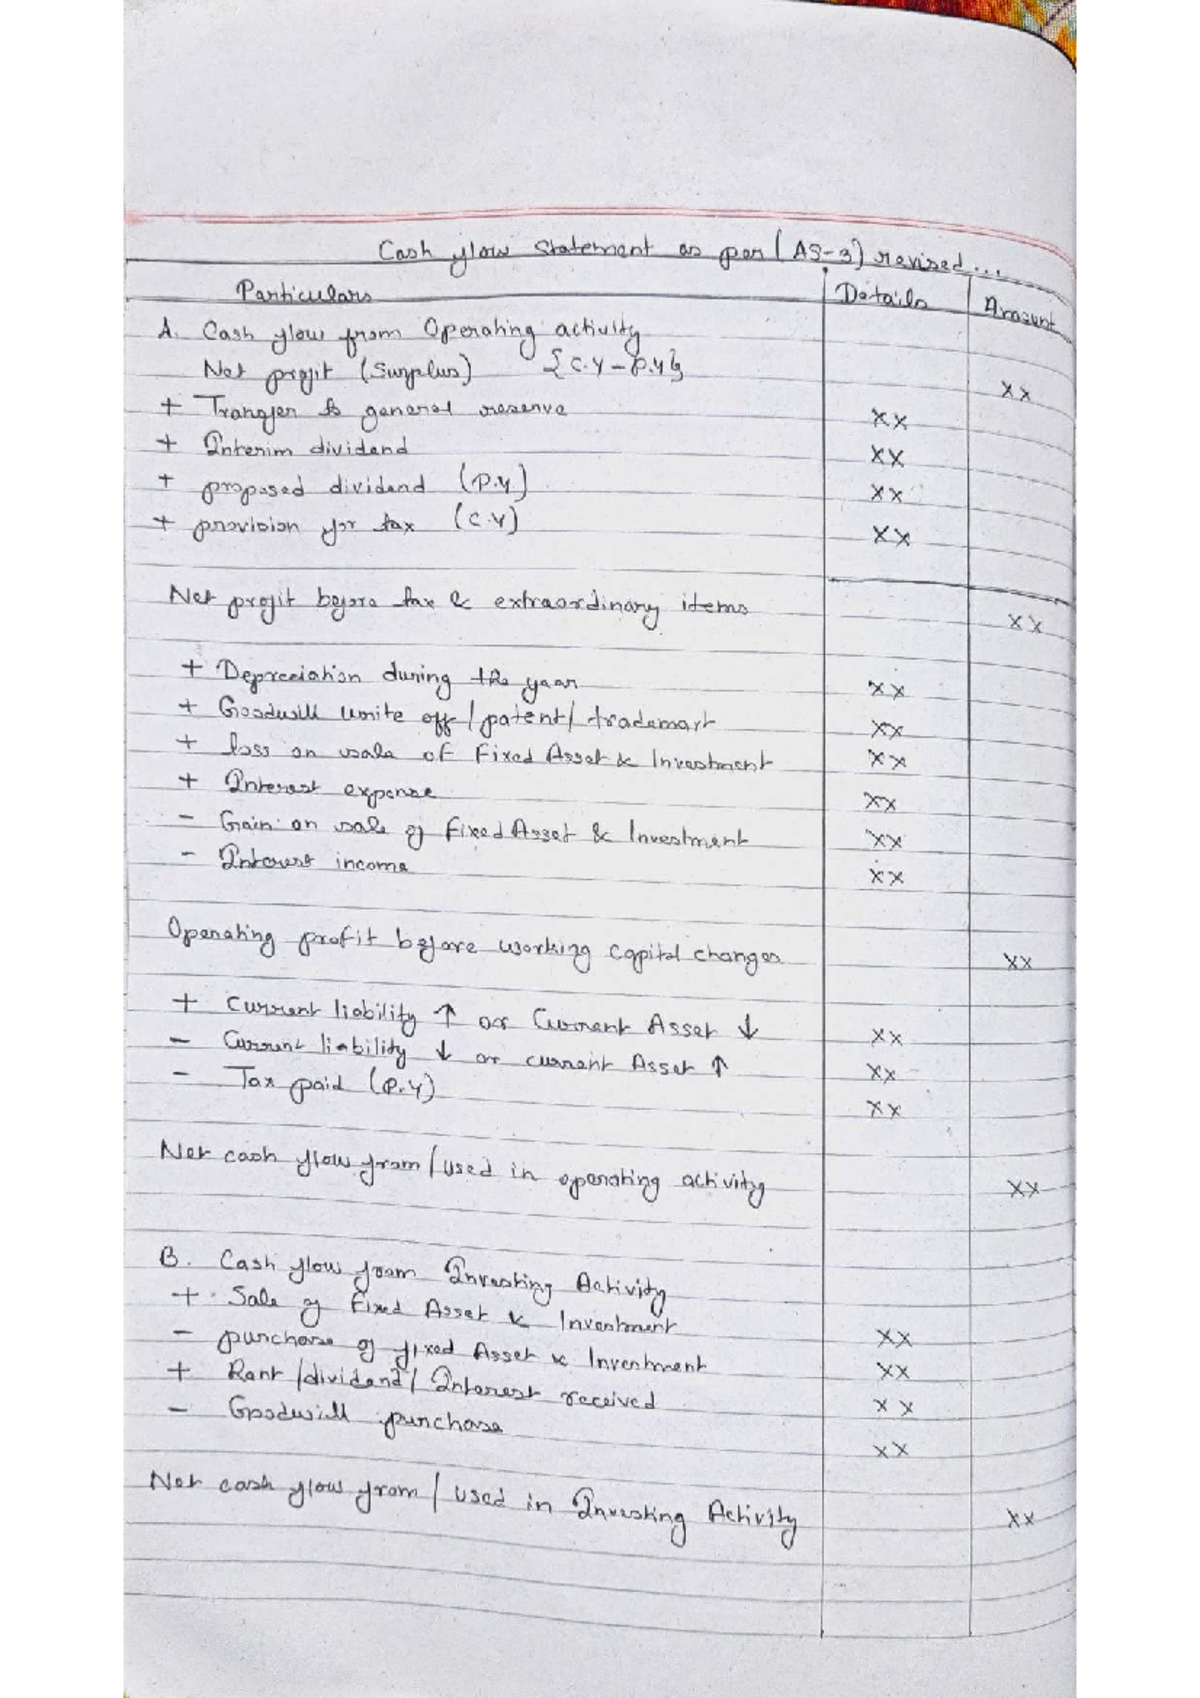 Cash flow statement as per (AS-3) revised...
Particulars Details Amount
A. Cash flow from Operating activity
Net profit (Surplus) {C.Y - P.Y} XX
+ Transfer to general reserve XX
+ Interim dividend XX
+ proposed dividend (P.Y) XX
+ provision for tax (C.Y) XX
Net profit before tax & extraordinary items XX
+ Depreciation during the year XX
+ Goodwill write off / patent / trademark XX
+ loss on sale of Fixed Asset & Investment XX
+ Interest expense XX
- Gain on sale of Fixed Asset & Investment XX
- Interest income XX
Operating profit before working capital changes XX
+ Current liability ↑ or Current Asset ↓ XX
- Current liability ↓ or current Asset ↑ XX
- Tax paid (P.Y) XX
Net cash flow from / used in operating activity XX
B. Cash flow from Investing Activity
+ Sale of Fixed Asset & Investment XX
- purchase of fixed Asset & Investment XX
+ Rent / dividend / Interest received XX
- Goodwill purchase XX
Net cash flow from / used in Investing Activity XX